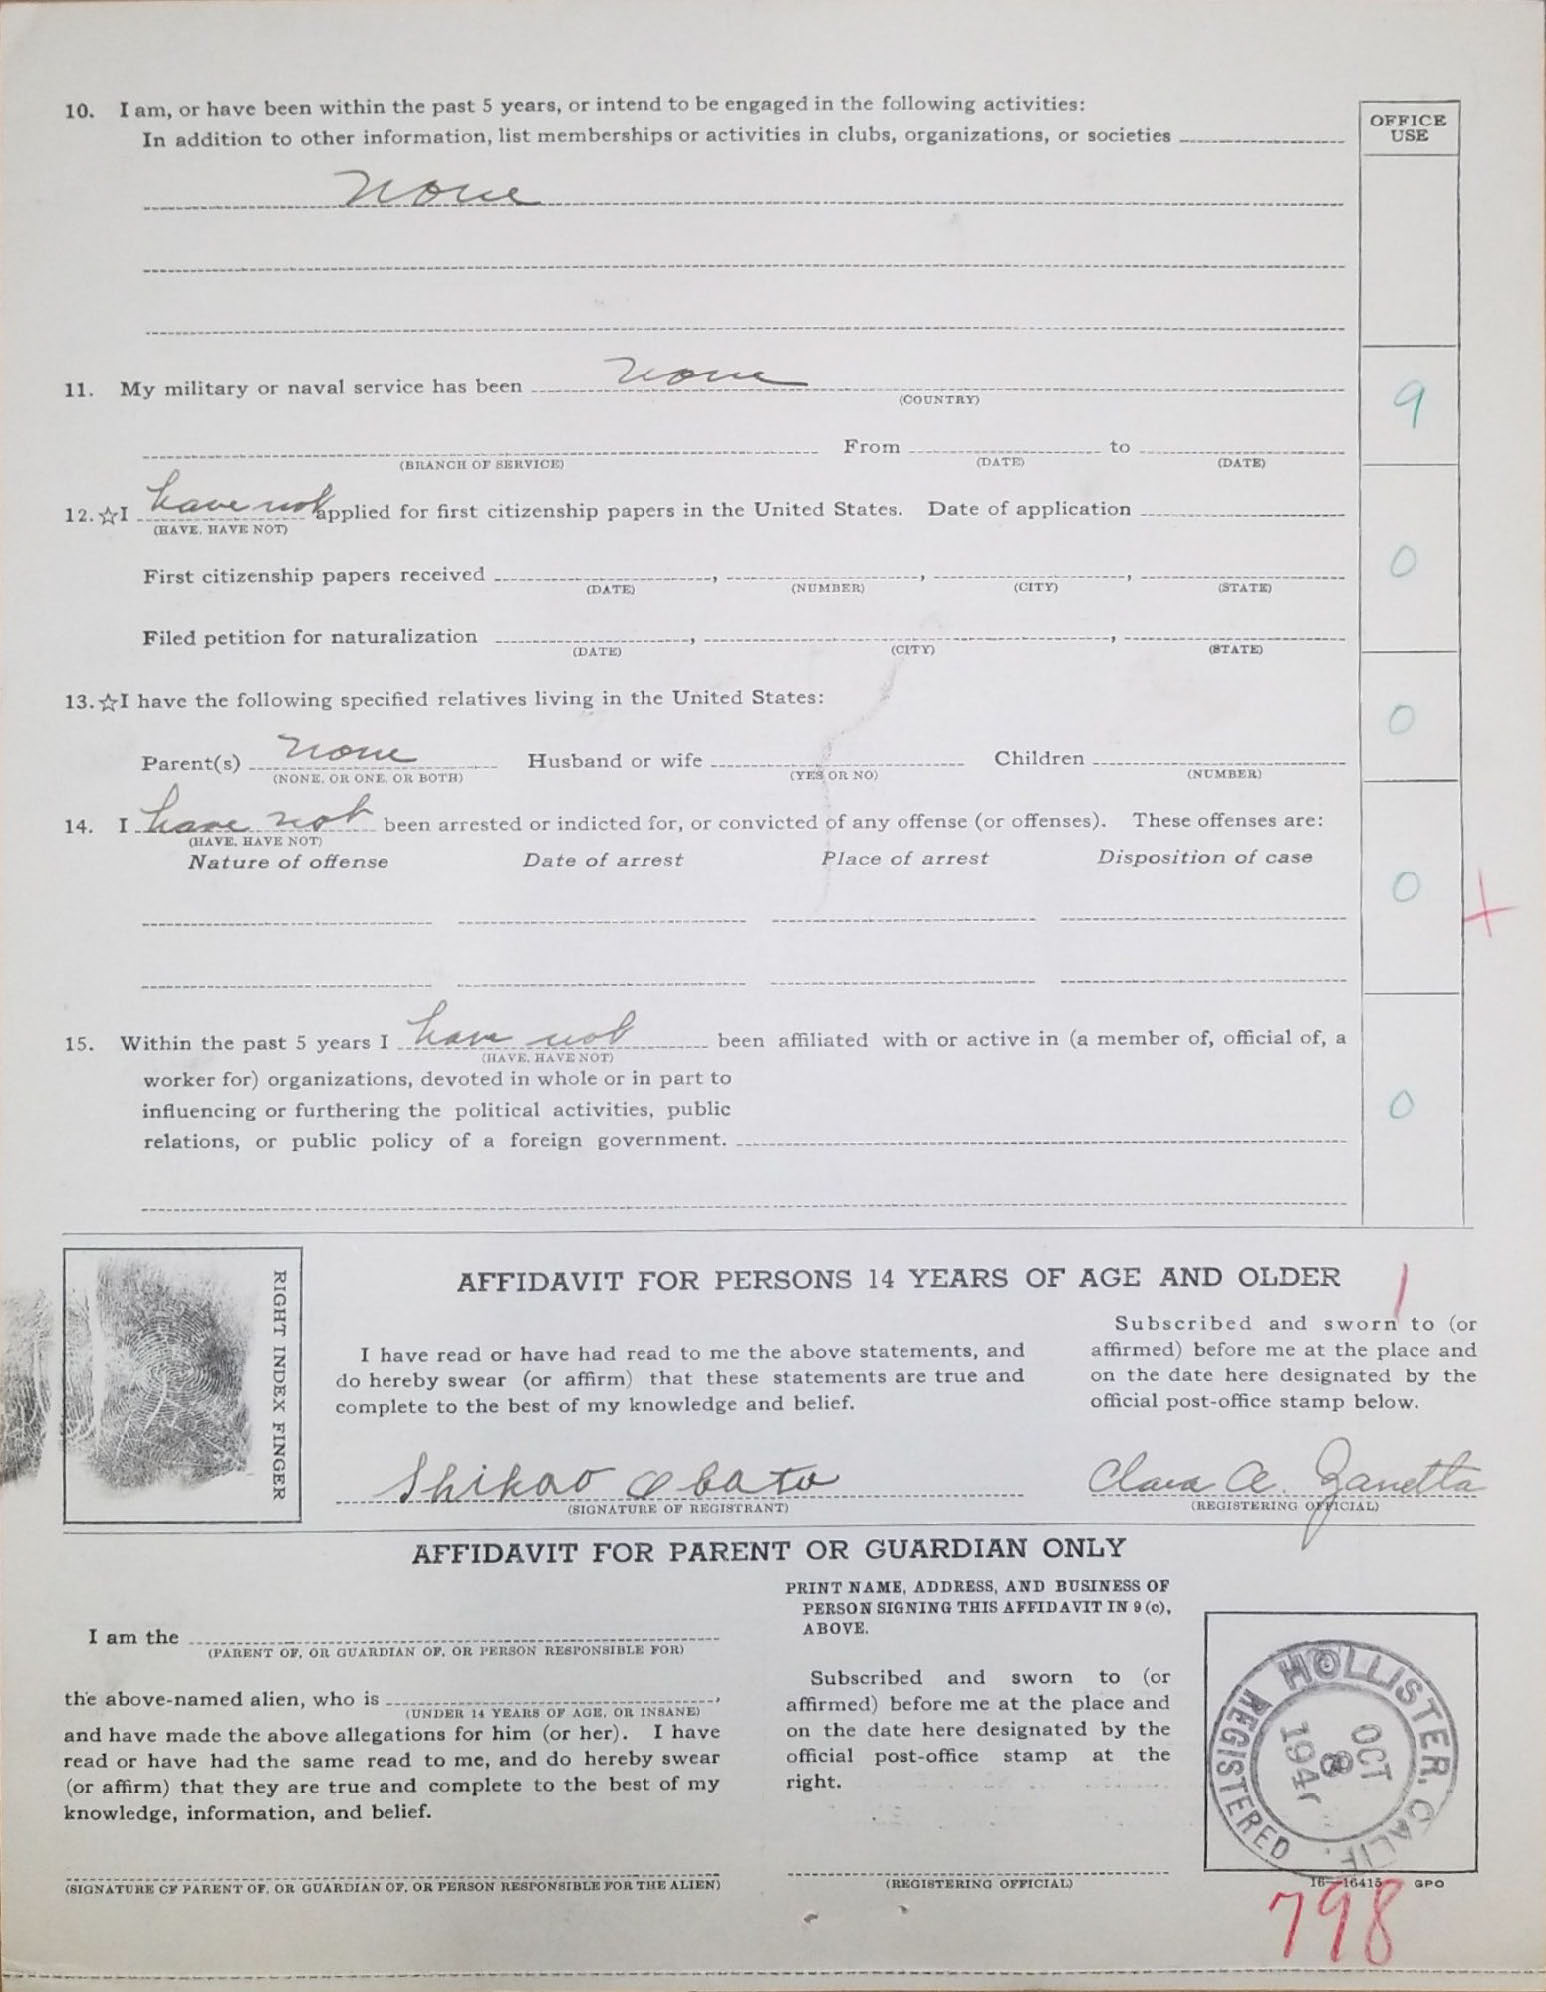 10. I am, or have been within the past 5 years, or intend to be engaged in the following activities:
In addition to other information, list memberships or activities in clubs, organizations, or societies
None
OFFICE USE
11. My military or naval service has been None
(COUNTRY)
9
From to
(BRANCH OF SERVICE) (DATE) (DATE)
12. ☆I have not applied for first citizenship papers in the United States. Date of application
(HAVE, HAVE NOT)
0
First citizenship papers received , , ,
(DATE) (NUMBER) (CITY) (STATE)
Filed petition for naturalization , ,
(DATE) (CITY) (STATE)
13. ☆I have the following specified relatives living in the United States:
0
Parent(s) None Husband or wife Children
(NONE, OR ONE, OR BOTH) (YES OR NO) (NUMBER)
14. I have not been arrested or indicted for, or convicted of any offense (or offenses). These offenses are:
(HAVE, HAVE NOT)
Nature of offense Date of arrest Place of arrest Disposition of case
0
15. Within the past 5 years I have not been affiliated with or active in (a member of, official of, a
(HAVE, HAVE NOT)
worker for) organizations, devoted in whole or in part to
influencing or furthering the political activities, public
relations, or public policy of a foreign government.
0
RIGHT INDEX FINGER
AFFIDAVIT FOR PERSONS 14 YEARS OF AGE AND OLDER
I have read or have had read to me the above statements, and
do hereby swear (or affirm) that these statements are true and
complete to the best of my knowledge and belief.
Shikao Obata
(SIGNATURE OF REGISTRANT)
Subscribed and sworn to (or
affirmed) before me at the place and
on the date here designated by the
official post-office stamp below.
Clara A. Zanetta
(REGISTERING OFFICIAL)
AFFIDAVIT FOR PARENT OR GUARDIAN ONLY
I am the
(PARENT OF, OR GUARDIAN OF, OR PERSON RESPONSIBLE FOR)
the above-named alien, who is ,
(UNDER 14 YEARS OF AGE, OR INSANE)
and have made the above allegations for him (or her). I have
read or have had the same read to me, and do hereby swear
(or affirm) that they are true and complete to the best of my
knowledge, information, and belief.
(SIGNATURE OF PARENT OF, OR GUARDIAN OF, OR PERSON RESPONSIBLE FOR THE ALIEN)
PRINT NAME, ADDRESS, AND BUSINESS OF
PERSON SIGNING THIS AFFIDAVIT IN 9 (c),
ABOVE.
Subscribed and sworn to (or
affirmed) before me at the place and
on the date here designated by the
official post-office stamp at the
right.
(REGISTERING OFFICIAL)
HOLLISTER, CALIF.
REGISTERED
OCT
8
16—16415 GPO
798